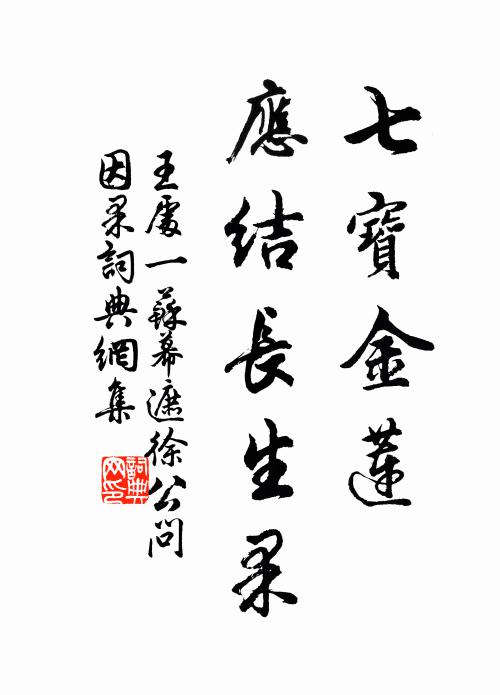 七寶金蓮
應結長生果
王處一蘇幕遮徐公問
因果詞典網集
詞典網印